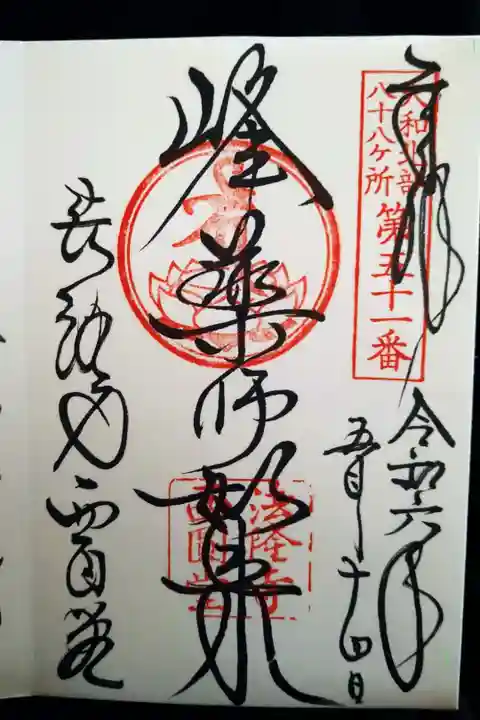 奉拝
大和北部
八十八ヶ所
第五十一番
令和六年
五月二十四日
峰薬師如来
法隆寺
西圓堂
西円堂